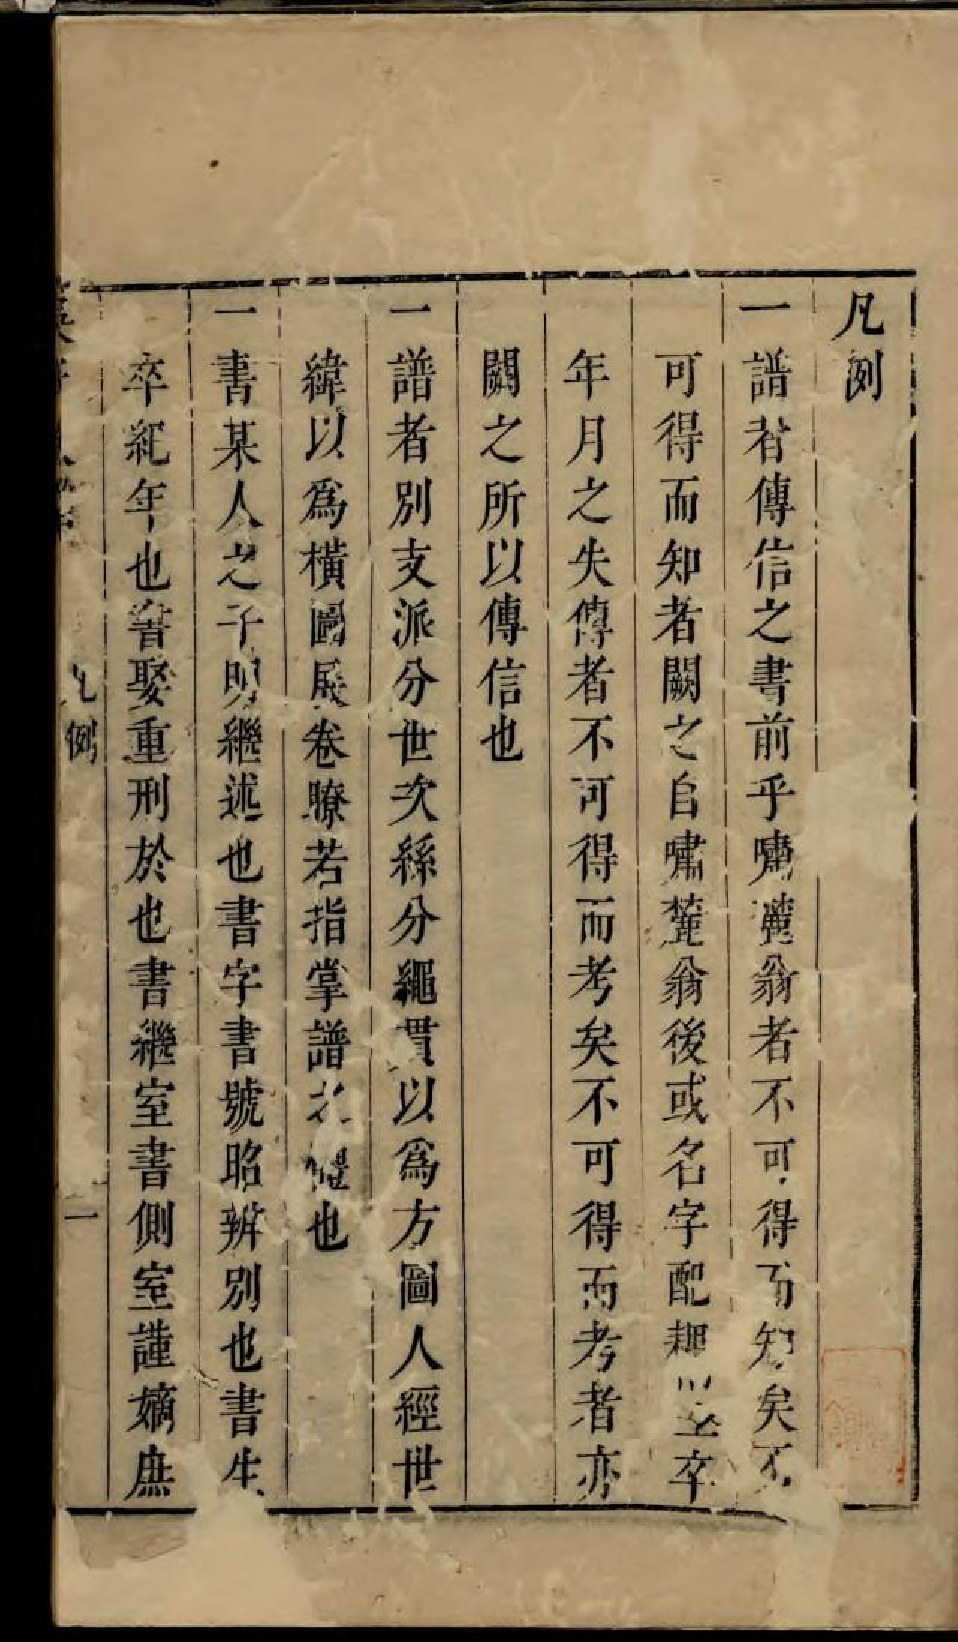 凡例
一譜者傳信之書前乎嘯麓翁者不可得而知矣不
可得而知者闕之自嘯麓翁後或名字配葬生卒
年月之失傳者不可得而考矣不可得而考者亦
闕之所以傳信也
一譜者別支派分世次絲分繩貫以爲方圖人經世
緯以爲橫圖展卷瞭若指掌譜之體也
一書某人之子明繼述也書字書號昭辨別也書生
卒紀年也書娶重刑於也書繼室書側室謹嫡庶
凡例
一